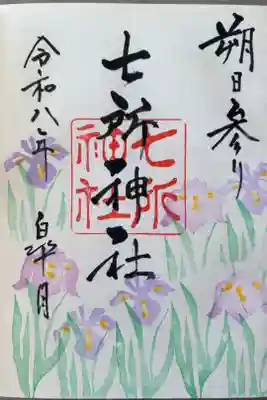 朔日参り
七所神社
七所
神社
令和八年 皐月